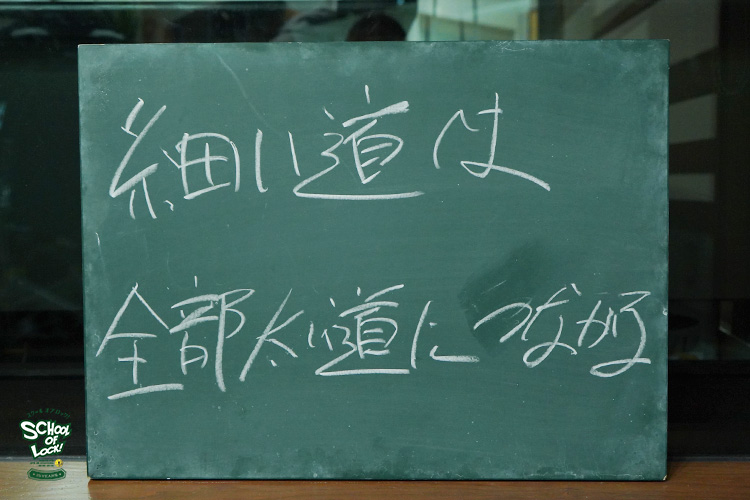 細い道は
全部太い道につながる
SCHOOL
OF
LOCK!